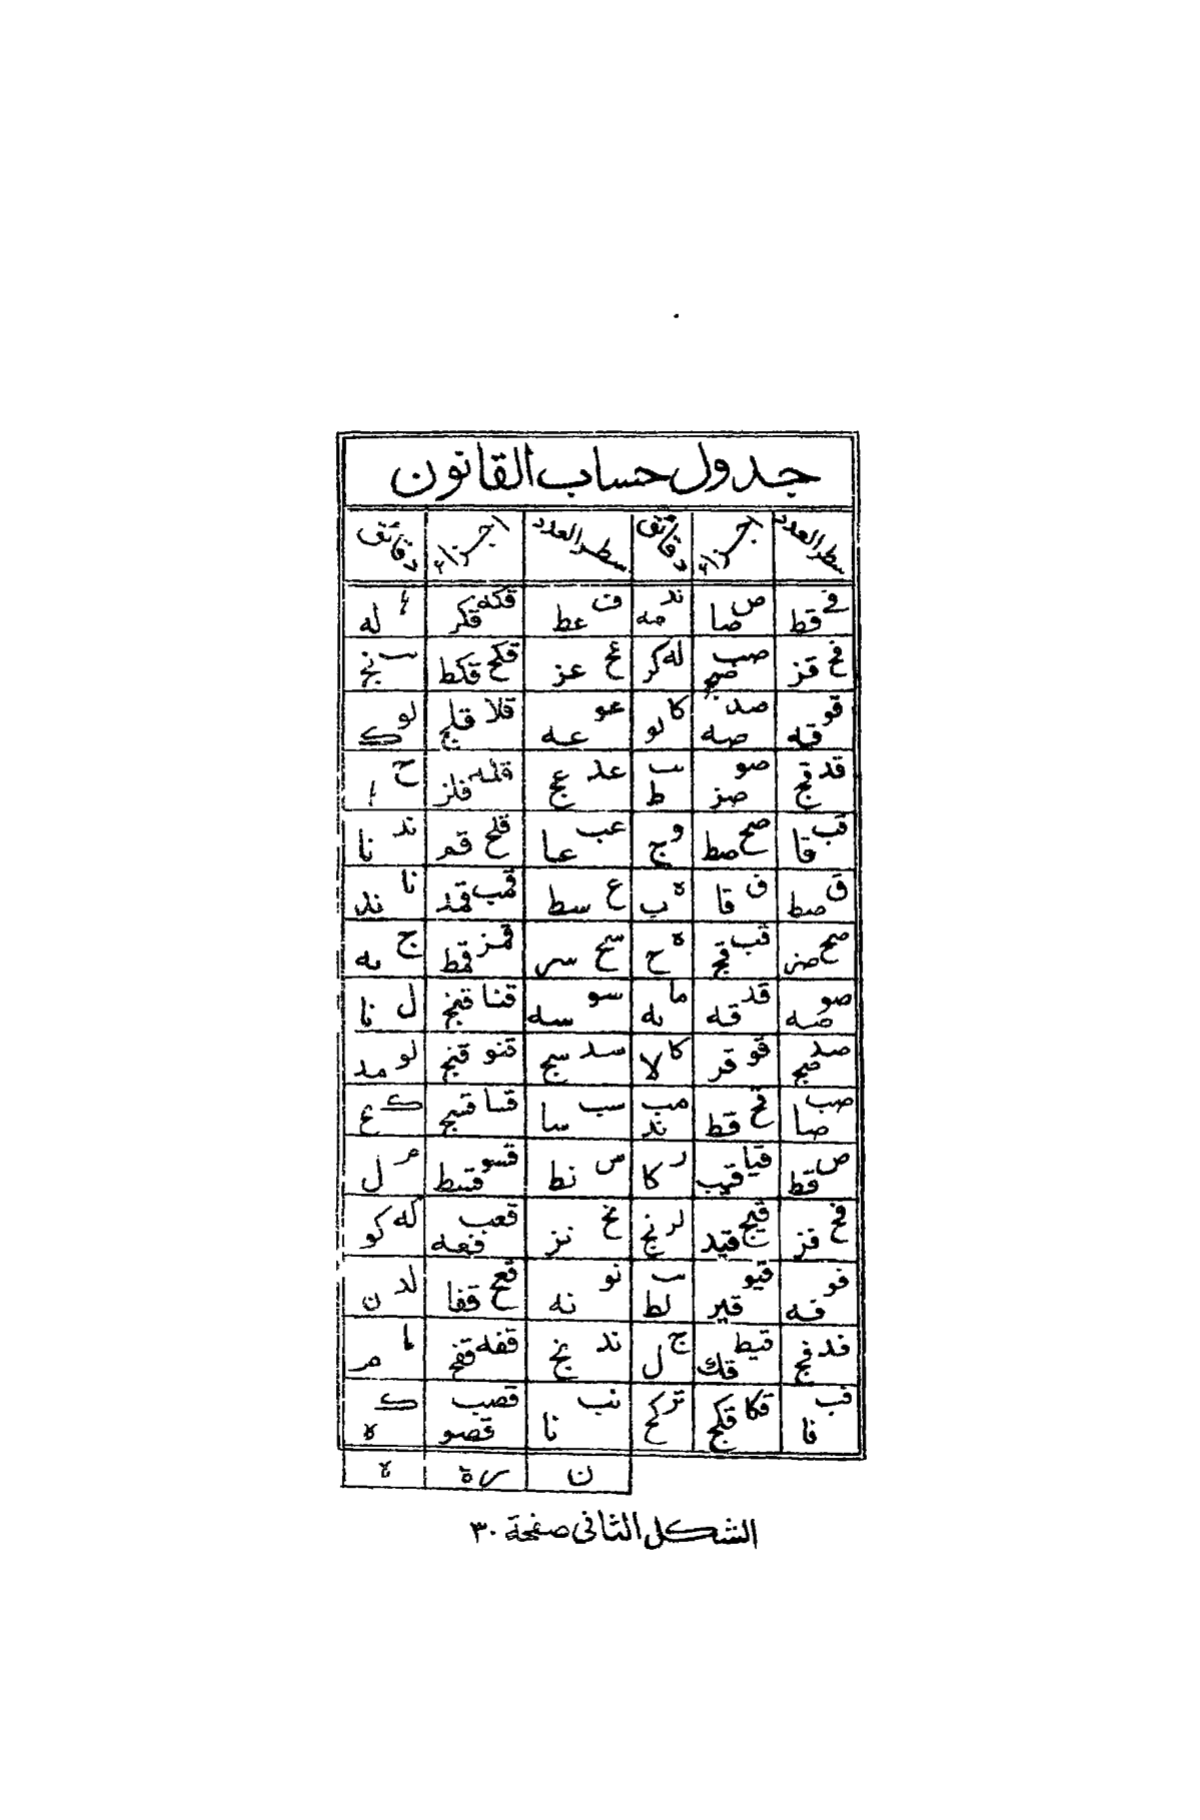 جدول حساب القانون
سطر العدد اجزاء دقائق سطر العدد اجزاء دقائق
قط ص صا ند مه ف عط قكه قكز له
قح قز صب صج له كز عح عز قكح قكط نج
قو قه صد صه كا لو عو عه قلا قلج لو ك
قد قج صو صز ب ط عد عج قله قلز ح
قب قا صح صط و ج عب عا قلح قم ند نا
ق صط ق قا ه ب ع سط قمب قمد نا ند
صح صز قب قج ه ح سح سز قمز قمط ج
صو صه قد قه ما سو سه قنا قنج ل نا
صد صج قو قز كا لا سد سج قنو قنح لو مد
صب صا قح قط مب ند سب سا قسا قسج ك
ص قط قيا قيب كا س نط قسو قسط م ل
فح فز قيج قيد لز نج نح نز قعب قعه كه كو
فو فه قيو قيز ب لط نو نه قعح قفا لد ن
فد فج قيط قك ج ل ند نج قفه قفح م
فب فا قكا قكج كح نب نا قصب قصو ك ه
ن ه
الشكل الثاني صفحة ٣٠